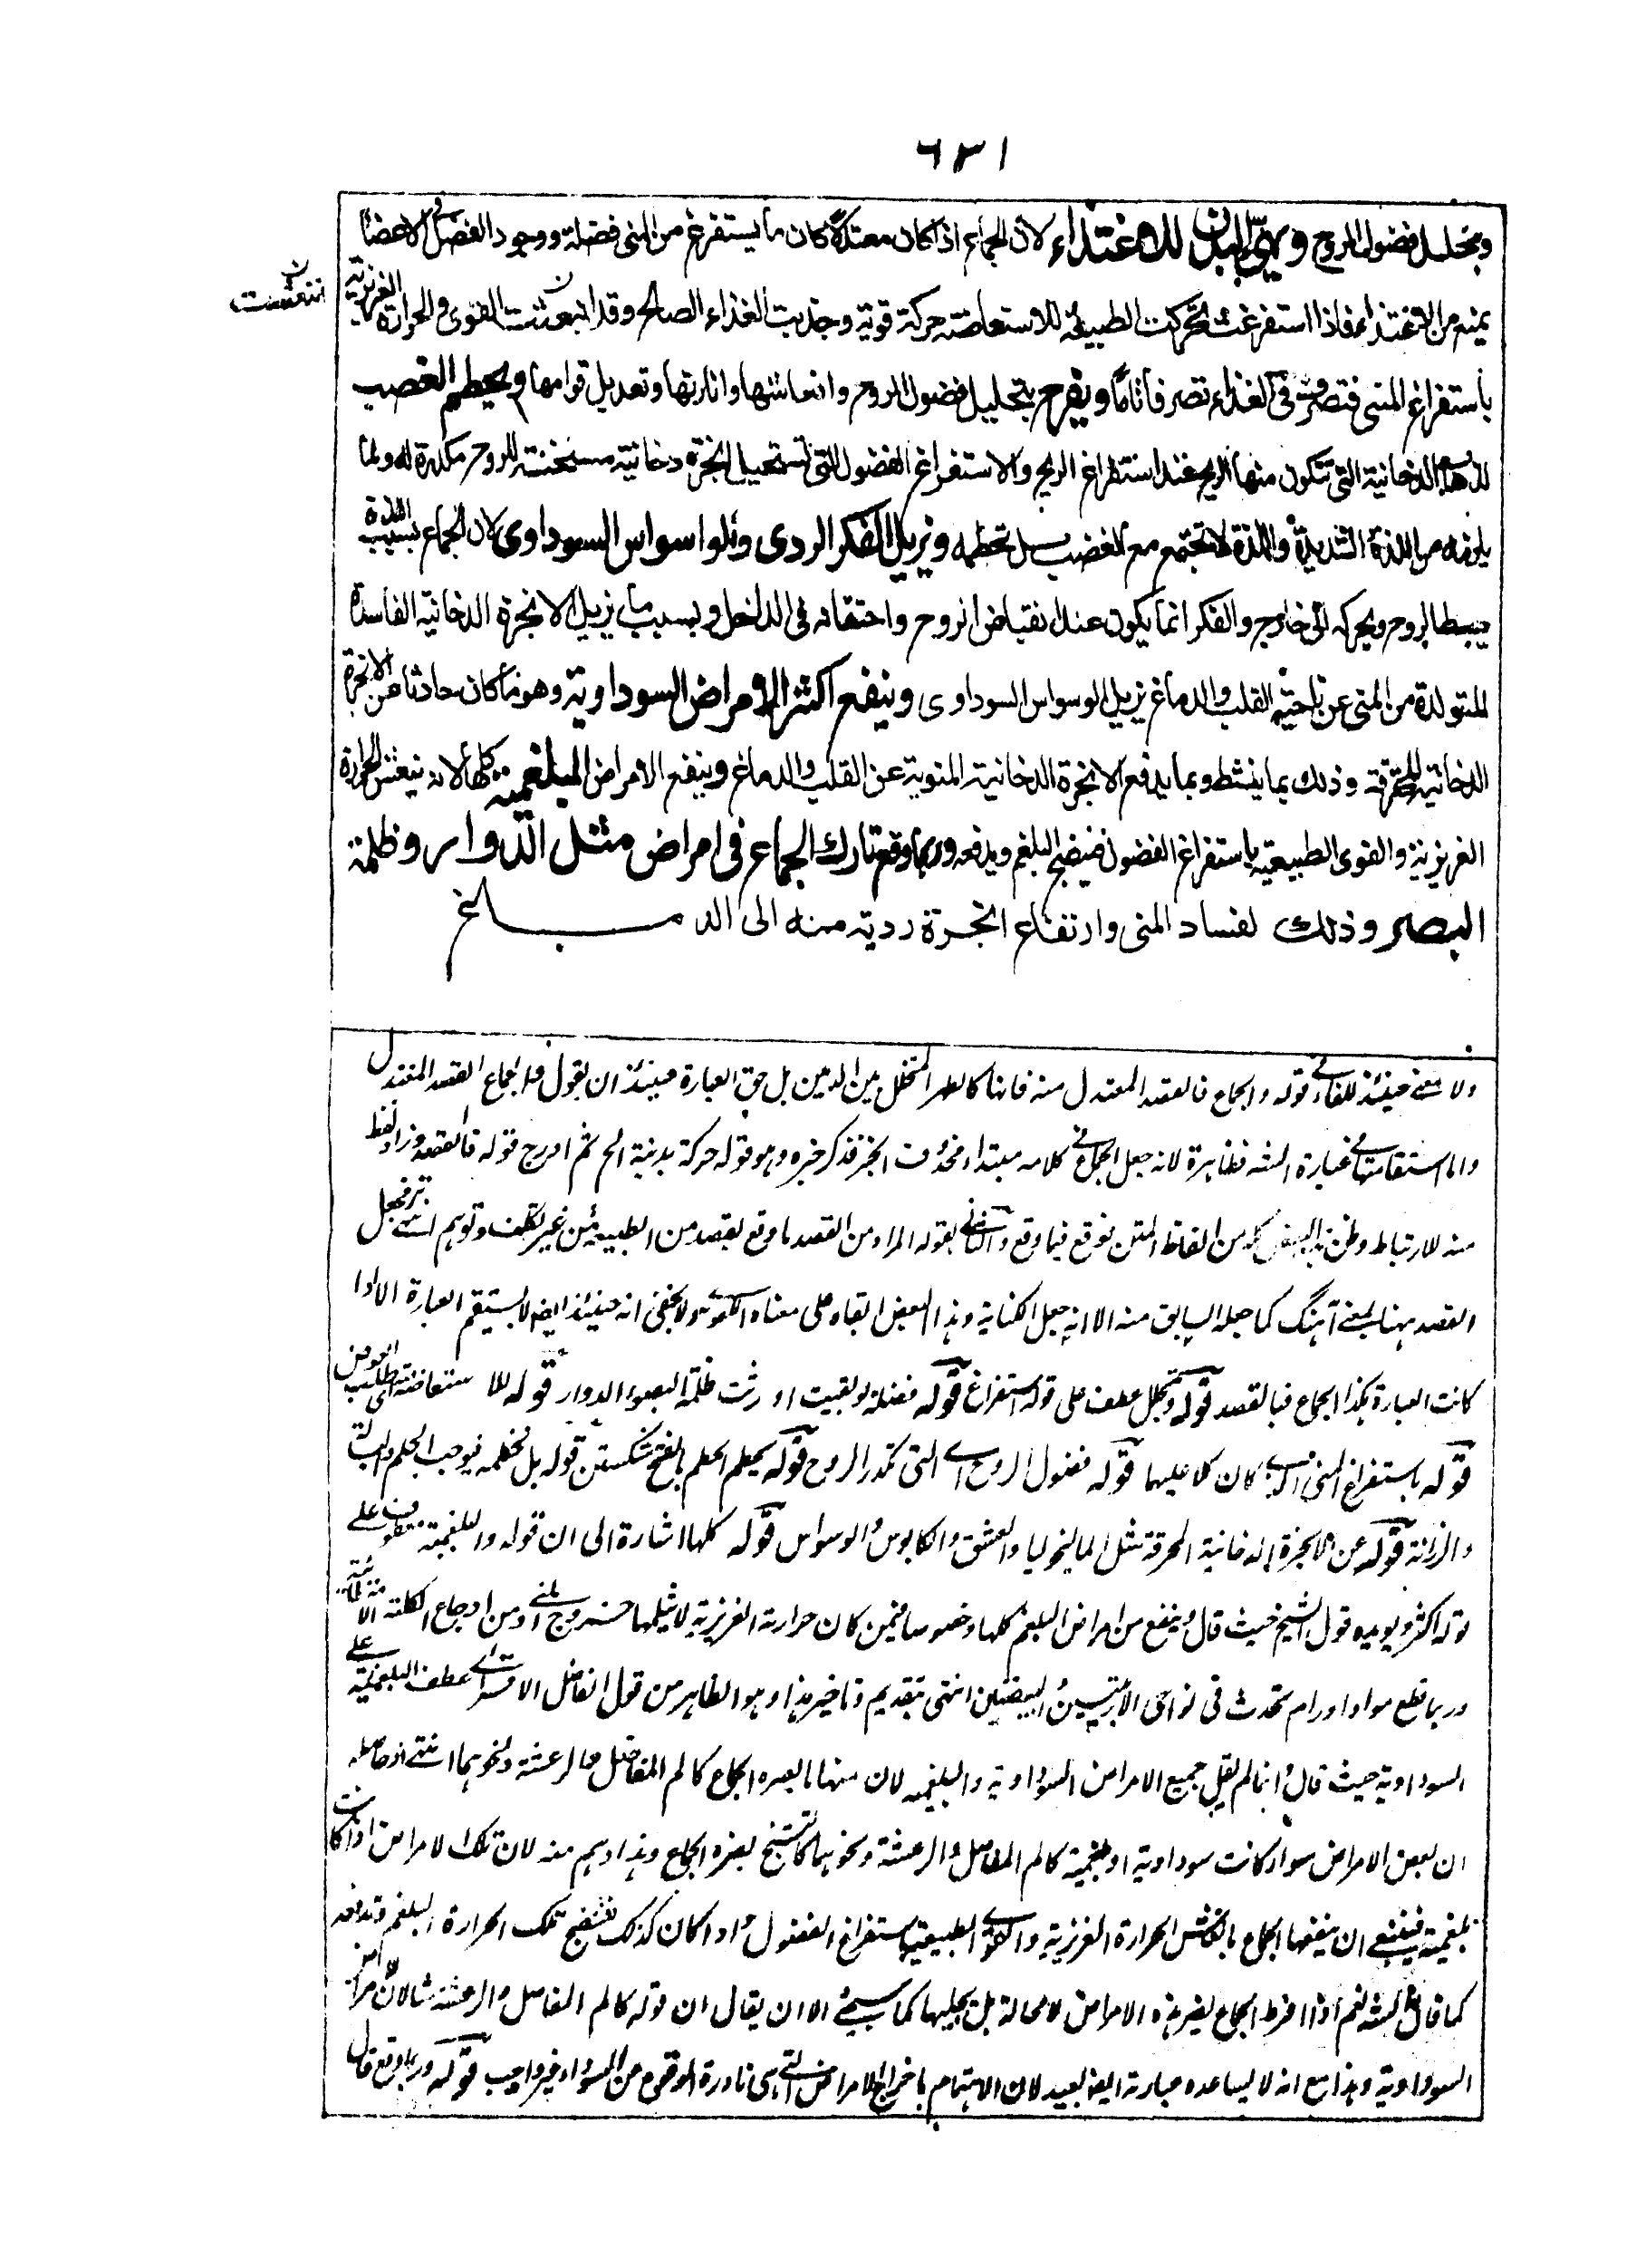 ٦٣١
ويحلل فضول الروح ويهيئ البدن للاغتذاء لان الجماع اذا كان معتدلا كان ما يستفرغ من المنى فضلة ووجود الفضل فى الاعضا
يمنع من الاغتذاء فاذا استفرغت تحركت الطبيعة للاستعاضة حركة قوية وجذبت الغذاء الصالح وقد انبعثت القوى والحرارة الغريزية
ن
تنعشت
باستفراغ المنى فتصرفت فى الغذاء تصرفا تاما ويفرح بتحليل فضول الروح وانعاشها وانارتها وتعديل قوامها ويحطم الغضب
الدخانية التى تتكون منها الريح عند استفراغ الريح ولاستفراغ الفضول التى تستحيل ابخرة دخانية مسخنة للروح مكدرة له ولما
يلزمه من اللذة الشديدة واللذة لا تجتمع مع الغضب بل تحطمه ويزيل الفكر الردى والوسواس السوداوى لان الجماع بسبب اللذة
يبسط الروح ويحركه الى خارج والفكر انما يكون عند انقباض الروح واحتقانه فى الداخل وبسبب ما يزيل الابخرة الدخانية الفاسدة
المتولدة من المنى عن ناحية القلب والدماغ يزيل الوسواس السوداوى وينفع اكثر الامراض السوداوية وهو ما كان حادثا عن الابخرة
الدخانية المحترقة وذلك بما ينشط وبما يدفع الابخرة الدخانية المنوية عن القلب والدماغ وينفع الامراض البلغمية كلها لانه ينعش الحرارة
الغريزية والقوى الطبيعية باستفراغ الفضول فينضج البلغم ويدفعه وربما وقع تارك الجماع فى امراض مثل الدوار وظلمة
البصر وذلك لفساد المنى وارتفاع ابخرة ردية منه الى الدماغ
ولا معنى حينئذ للفاء فى قوله والجماع فالقصد المعتدل منه فانها كالطهر المتخلل بين الدمين بل حق العبارة حينئذ ان يقول فالجماع القصد المعتدل
واما استقامتها فى عبارة الشه فظاهرة لانه جعل الجماع فى كلامه مبتداء محذوف الخبر فذكر خبره وهو قوله حركة بدنية الخ ثم ادرج قوله فالقصد وزاد لفظ
منه للارتباط وظن البعض كله من الفاظ المتن فوقع فيما وقع بقوله المراد من القصد ما وقع بقصد من الطبيعة من غير تكلف وتوهم انتهى فجعل
القصد ههنا بمعنى آهنگ كما جعله السابق منه الا انه جعل الكناية وهذا البعض ابقاه على معناه اللغوى ولا يخفى انه حينئذ ايضا لا يستقيم العبارة الا اذا
كانت العبارة هكذا الجماع فبالقصد قوله ويحلل عطف على قوله استفراغ قوله فضلة لو بقيت اورثت ظلمة البصر والدوار قوله للاستعاضة اى طلب العوض
قوله باستفراغ المنى الذى كان كلا عليها قوله فضول الروح اى التى تكدر الروح قوله يحطم الحطم بالفتح شكستن قوله بل تحطمه فيوجب الحلم
والرزانة قوله عن الابخرة الدخانية المحرقة مثل الماليخوليا والعشق والكابوس والوسواس قوله كلها اشارة الى ان قوله والبلغمية معطوف على
قوله اكثر ويويده قول الشيخ حيث قال وينفع من امراض البلغم كلها وخصوصا فيمن كان حرارته الغريزية لا يثلمها خروج المنى ومن اوجاع الكلية الامتلائية
وربما قطع مواد اورام تحدث فى نواحى الاربيتين والبيضتين انتهى بتقديم وتاخير هذا وهو الظاهر من قول الفاضل عطف البلغمية على
السوداوية حيث قال وانما لم يقل جميع الامراض السوداوية والبلغمية لان منها ما يضره الجماع كالم المفاصل والرعشة ونحوهما انتهى اذ حاصله
ان بعض الامراض سواء كانت سوداوية او بلغمية كالم المفاصل والرعشة ونحوهما كالتشنج يضره الجماع وهذا وهم منه لان تلك الامراض اذا كانت
بلغمية فينبغى ان ينفعها الجماع بانعاش الحرارة الغريزية والقوى الطبيعية باستفراغ الفضول واذا كان كذلك فتنضج تلك الحرارة البلغم وتدفعه
كما قال الشه نعم اذا افرط الجماع يضر هذه الامراض لا محالة بل يجلبها كما سيجئ الا ان يقال ان قوله كالم المفاصل والرعشة مثالان لامراض
السوداوية وهذا مع انه لا يساعده عبارته ايضا بعيد لان الاهتمام باخراج الامراض التى هى نادرة الوقوع من السوداء غير واجب قوله وربما وقع قال